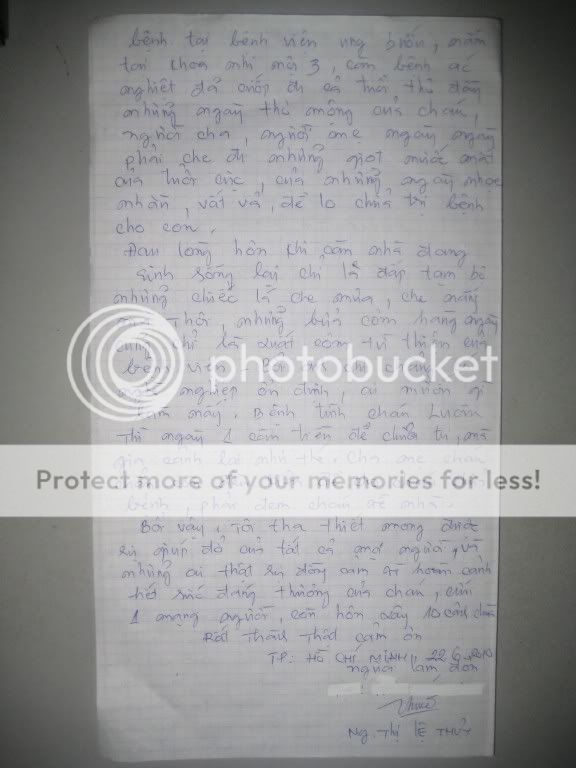 bệnh tại bệnh viện ung bướu, nằm
tại khoa nhi nội 3, căn bệnh ác
nghiệt đã cướp đi cả tuổi thơ đầy
những ngày thơ mộng của cháu,
người cha, người mẹ ngày ngày
phải che đi những giọt nước mắt
của tuổi cực, của những ngày nhọc
nhằn, vất vả, để lo chữa trị bệnh
cho con.
Đau lòng hơn khi căn nhà đang
sinh sống lại chỉ là đáp tạm bỏ
những chiếc lá che mưa, che nắng
thôi, những bửa cơm hàng ngày
cũng chỉ là xuất cơm từ thiện của
photobucket
bệnh viện.
nghề nghiệp ổn định, ai mướn gì
làm nấy. Bệnh tình cháu
thì ngày 1 cần tiền để chữa trị, mà
gia cảnh lại như thế. Cha mẹ cháu
Protect more of your memories for less!
bệnh, phải đem cháu về nhà.
Bởi vậy, tôi tha thiết mong được
sự giúp đỡ của tất cả mọi người, và
những ai thật sự đồng cảm về hoàn cảnh
hết sức đáng thương của cháu, cứu
1 mạng người, còn hơn xây 10 cảnh chùa
Rất thành thật cảm ơn
TP. HỒ CHÍ MINH, 22 6 2010
người làm đơn
Ng. Thị LỆ THỦY